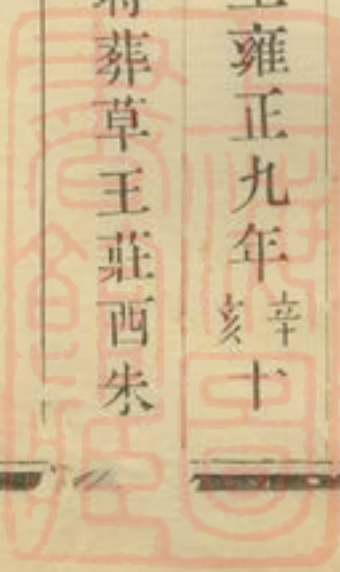 雍正九年辛亥十
葬草王莊西朱